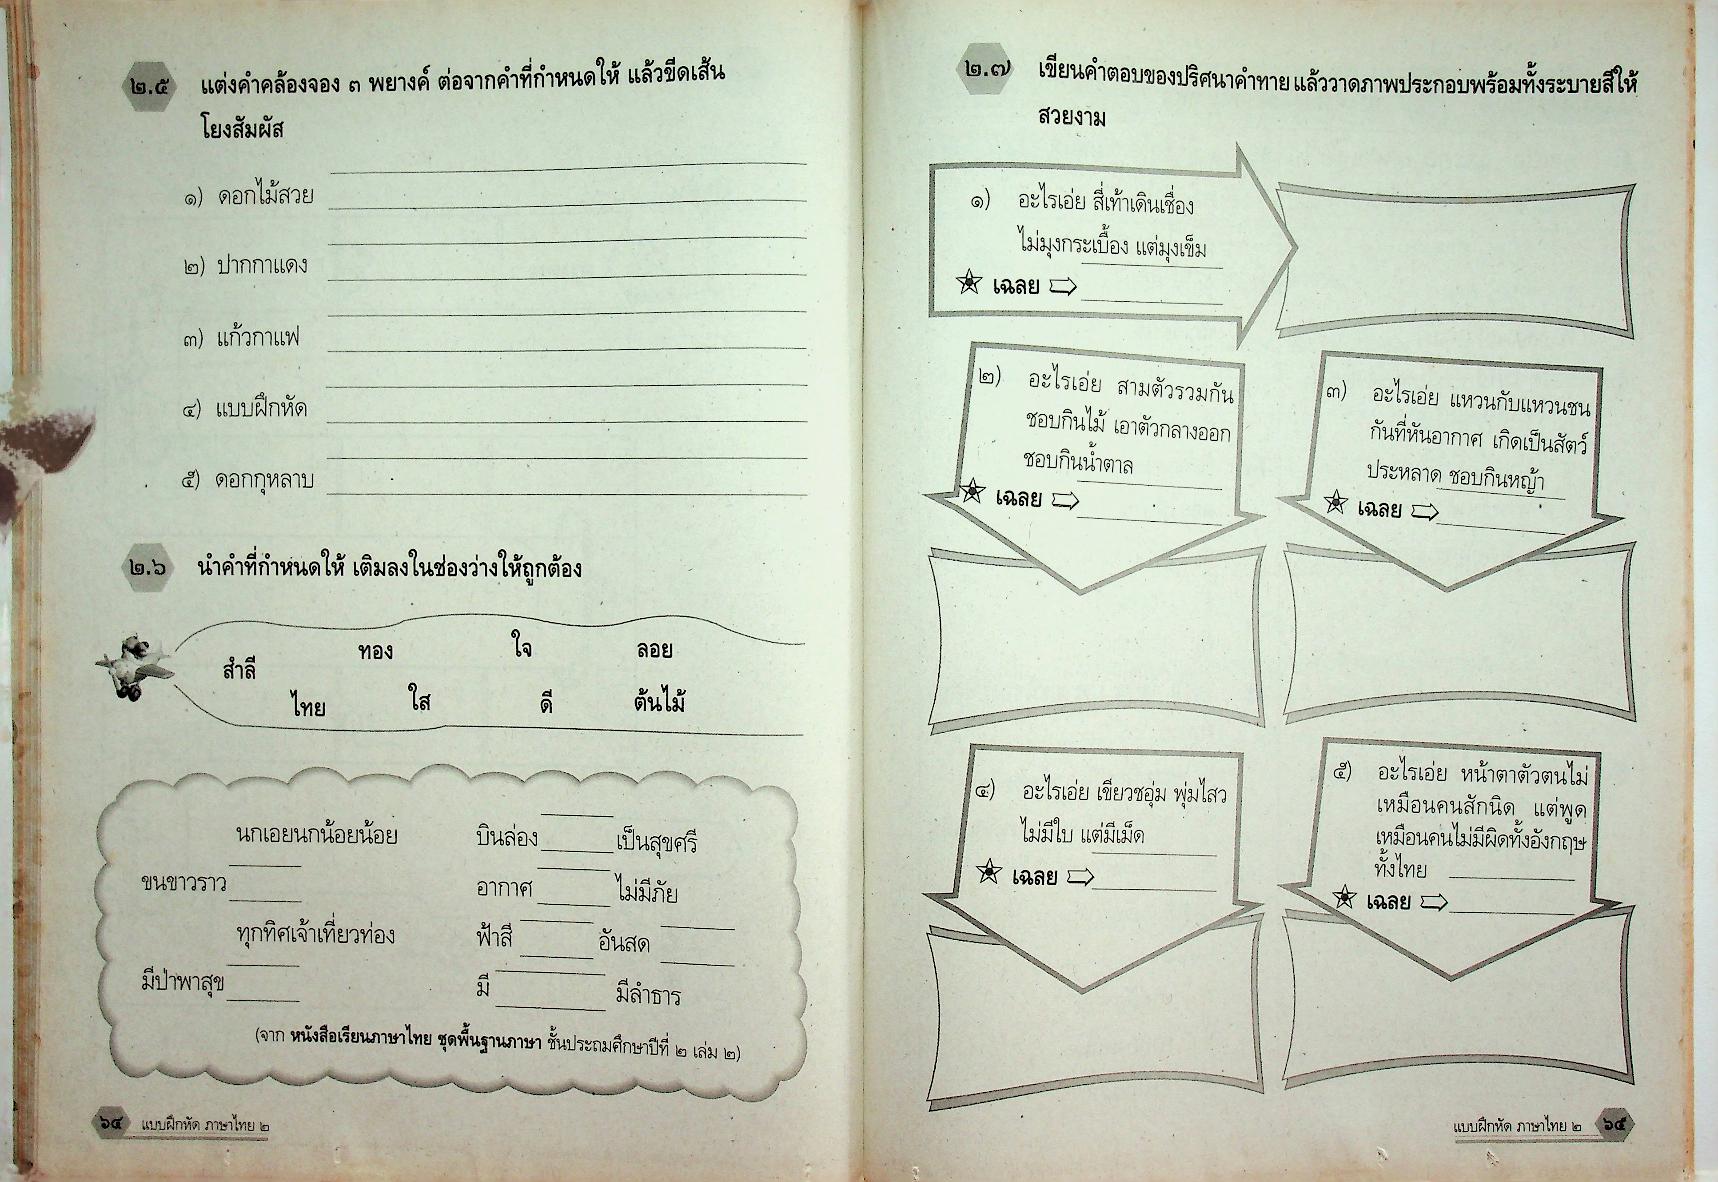 ๒.๕ แต่งคำคล้องจอง ๓ พยางค์ ต่อจากคำที่กำหนดให้ แล้วขีดเส้น
โยงสัมผัส
๑) ดอกไม้สวย
๒) ปากกาแดง
๓) แก้วกาแฟ
๔) แบบฝึกหัด
๕) ดอกกุหลาบ
๒.๖ นำคำที่กำหนดให้ เติมลงในช่องว่างให้ถูกต้อง
สำลี ทอง ใจ ลอย
ไทย ใส ดี ต้นไม้
นกเอยนกน้อยน้อย บินล่อง เป็นสุขศรี
ขนขาวราว อากาศ ไม่มีภัย
ทุกทิศเจ้าเที่ยวท่อง ฟ้าสี อันสด
มีป่าพาสุข มี มีลำธาร
(จาก หนังสือเรียนภาษาไทย ชุดพื้นฐานภาษา ชั้นประถมศึกษาปีที่ ๒ เล่ม ๒)
๖๔ แบบฝึกหัด ภาษาไทย ๒
๒.๗ เขียนคำตอบของปริศนาคำทาย แล้ววาดภาพประกอบพร้อมทั้งระบายสีให้
สวยงาม
๑) อะไรเอ่ย สี่เท้าเดินเชื่อง
ไม่มุงกระเบื้อง แต่มุงเข็ม
เฉลย
๒) อะไรเอ่ย สามตัวรวมกัน
ชอบกินไม้ เอาตัวกลางออก
ชอบกินน้ำตาล
เฉลย
๓) อะไรเอ่ย แหวนกับแหวนชน
กันที่หันอากาศ เกิดเป็นสัตว์
ประหลาด ชอบกินหญ้า
เฉลย
๔) อะไรเอ่ย เขียวชอุ่ม พุ่มไสว
ไม่มีใบ แต่มีเม็ด
เฉลย
๕) อะไรเอ่ย หน้าตาตัวตนไม่
เหมือนคนสักนิด แต่พูด
เหมือนคนไม่มีผิดทั้งอังกฤษ
ทั้งไทย
เฉลย
แบบฝึกหัด ภาษาไทย ๒ ๖๕